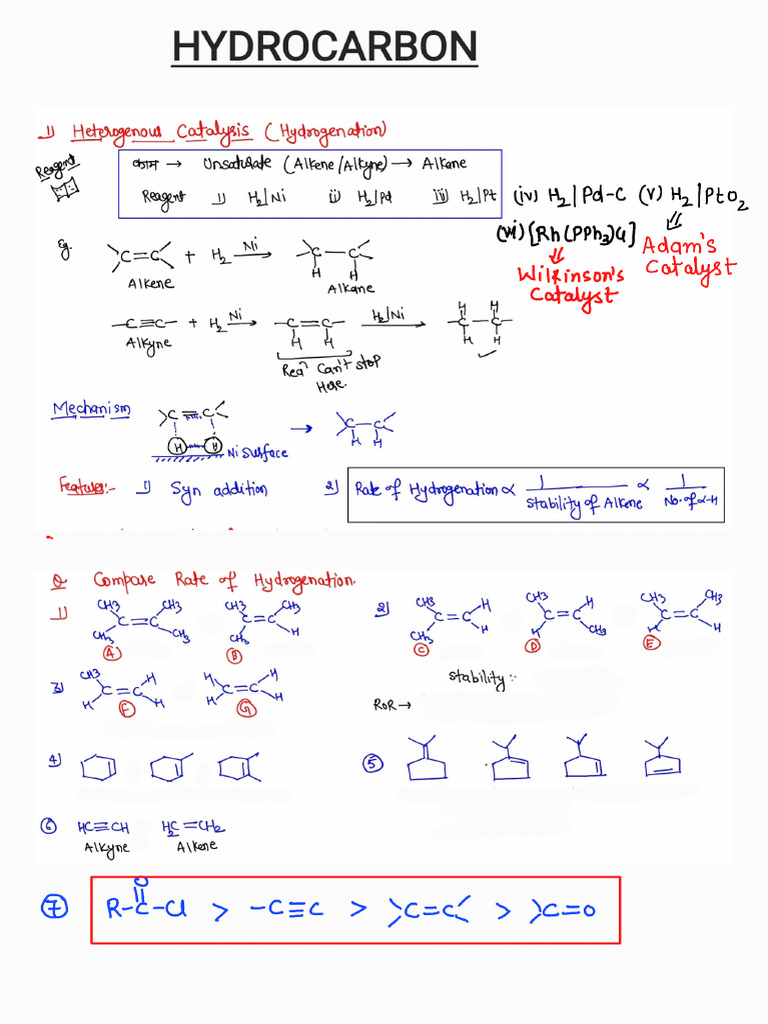 HYDROCARBON
1) Heterogenous Catalysis (Hydrogenation)
Reagent
काम → Unsaturate (Alkene/Alkyne) → Alkane
Reagent 1) H2/Ni ii) H2/Pd iii) H2/Pt (iv) H2/Pd-C (v) H2/PtO2
(vi) [Rh(PPh3)Cl] Adam's
Catalyst
Wilkinson's
Catalyst
Eg. >C=C< + H2 Ni→ >C-C<
H H
Alkene Alkane
-C≡C- + H2 Ni→ -C=C- H2/Ni→ -C-C-
H H H H H H
Alkyne
Rea? Can't stop
Here.
Mechanism >C=C< → >C-C<
H H H H
Ni Surface
Features:- 1) Syn addition 2) Rate of Hydrogenation ∝ 1/Stability of Alkene ∝ 1/No. of α-H
Q Compare Rate of Hydrogenation.
1) CH3 CH3 C=C CH3 CH3 A CH3 CH3 C=C CH3 H B 2) CH3 CH3 C=C H H C CH3 H C=C H CH3 D CH3 H C=C CH3 H E
3) CH3 H C=C H H F H H C=C H H G
Stability :-
ROR →
4) 5
6 HC≡CH H2C=CH2
Alkyne Alkene
7 R-C-Cl > -C≡C > >C=C< > >C=O
O